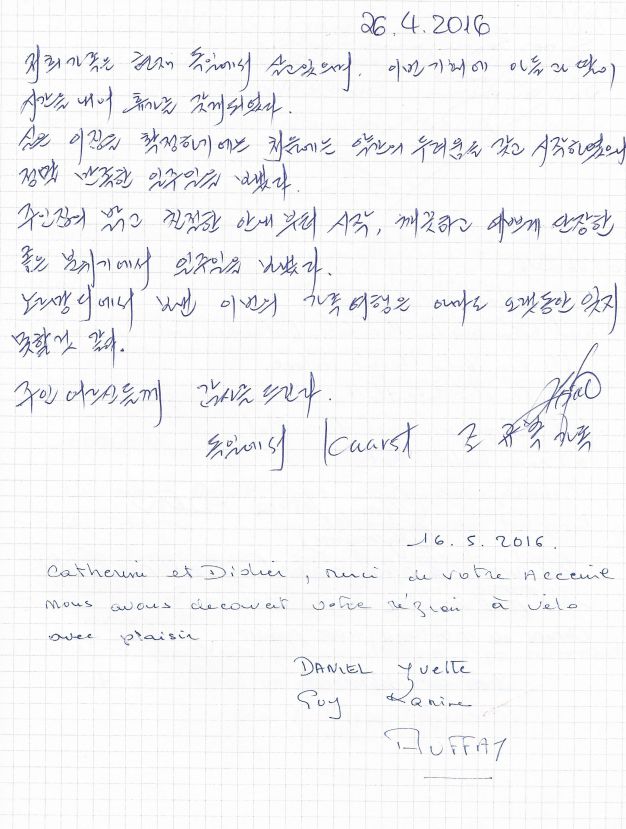 26.4.2016
저희 가족은 현재 독일에서 살고 있으며. 이번 기회에 아들과 많이
시간을 내어 휴가를 갖게 되었다.
이곳을 확정하기에는 처음에는 약간의 두려움을 갖고 시작하였으나
정말 만족한 일주일을 보냈다.
주인장의 밝고 친절한 안내부터 시작, 깨끗하고 예쁘게 단장한
좋은 분위기에서 일주일을 보냈다.
노르망디에서 보낸 이번의 가족여행은 아마도 오랫동안 잊지
못할 것 같아.
주인 어르신들께 감사를 드린다.
독일에서 Kaarst 조 가족
16.5.2016.
Catherine et Didier, merci de votre Acceuil
Nous avons decouvert votre région à vélo
avec plaisir
DANIEL Yvette
Guy